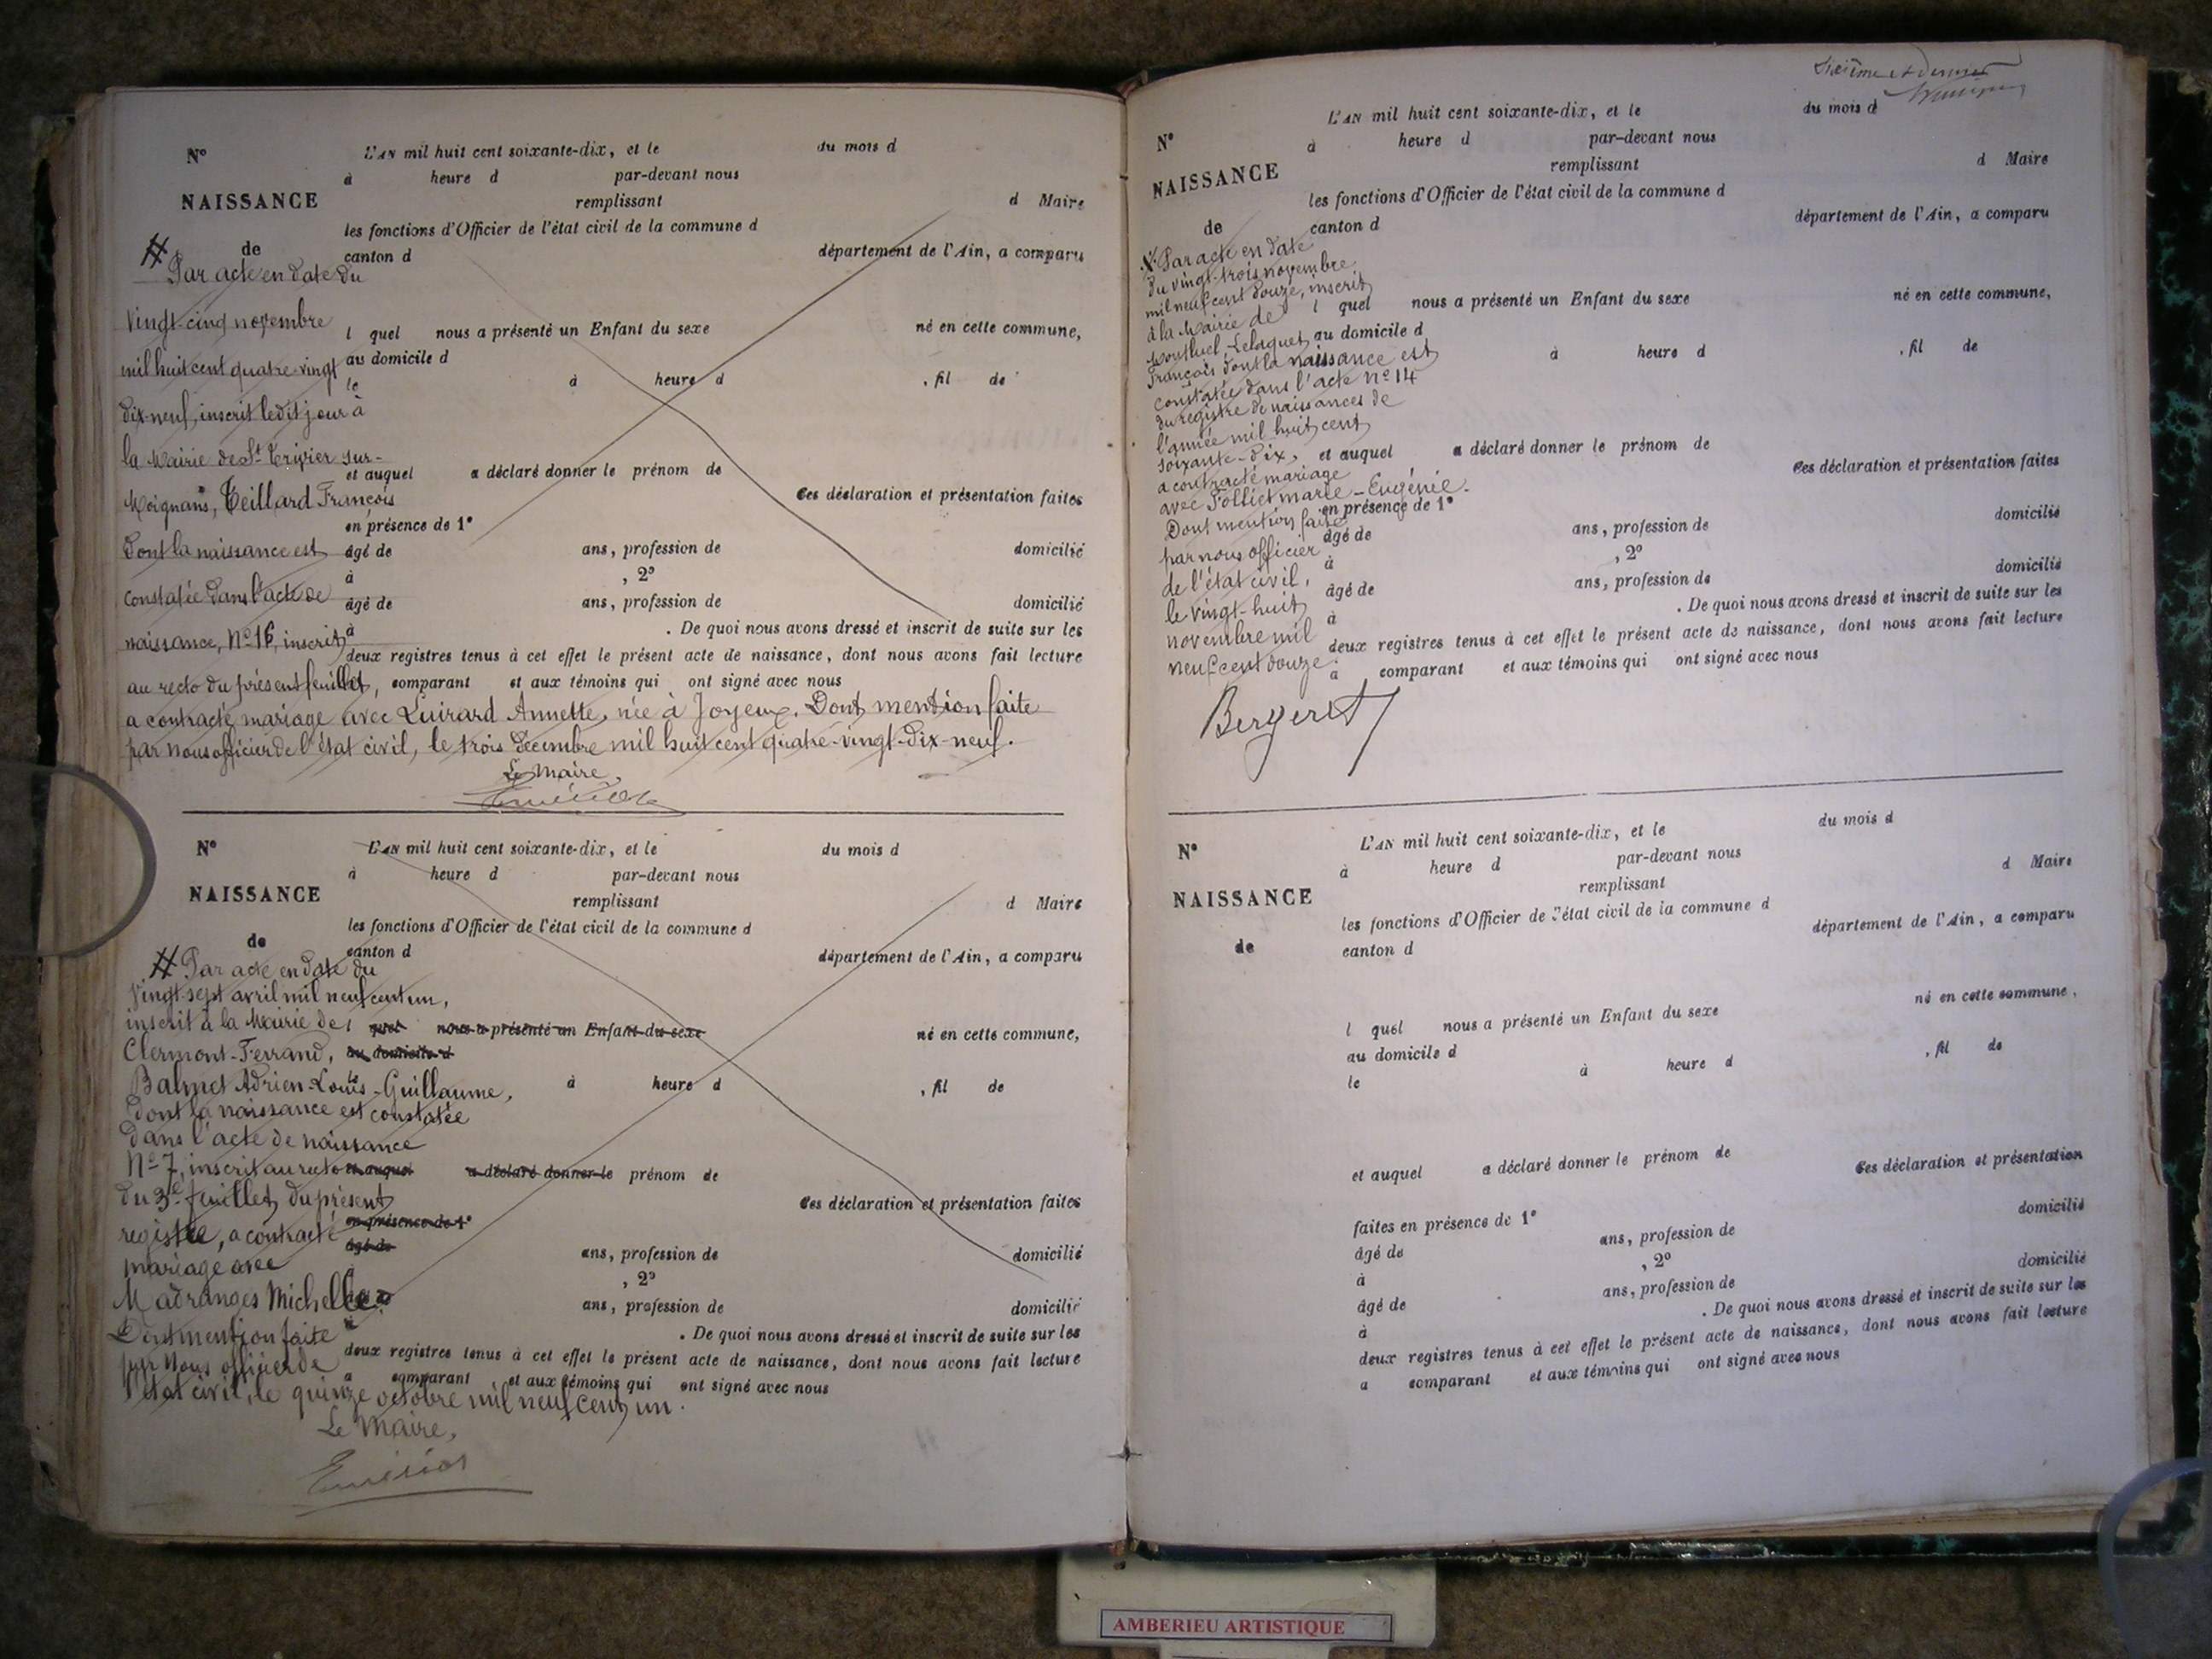 N° L'AN mil huit cent soixante-dix, et le du mois d
à heure d par-devant nous
NAISSANCE remplissant d Maire
les fonctions d'Officier de l'état civil de la commune d
de canton d département de l'Ain, a comparu
# Par acte en date du
vingt-cinq novembre
l quel nous a présenté un Enfant du sexe né en cette commune,
mil huit cent quatre-vingt au domicile d
le à heure d , fil de
dix-neuf, inscrit ledit jour à
la Mairie de St Trivier sur-
et auquel a déclaré donner le prénom de
Moignans, Teillard François Ces déclaration et présentation faites
en présence de 1°
Dont la naissance est âgé de ans, profession de domicilié
à , 2°
constatée dans l'acte de âgé de ans, profession de domicilié
naissance, N° 16, inscrit à . De quoi nous avons dressé et inscrit de suite sur les
deux registres tenus à cet effet le présent acte de naissance, dont nous avons fait lecture
au recto du présent feuillet, comparant et aux témoins qui ont signé avec nous
a contracté mariage avec Luirard Annette, née à Joyeux. Dont mention faite
par nous officier de l'état civil, le trois décembre mil huit cent quatre-vingt-dix-neuf.
Le Maire,
N° L'AN mil huit cent soixante-dix, et le du mois d
à heure d par-devant nous
NAISSANCE remplissant d Maire
les fonctions d'Officier de l'état civil de la commune d
de canton d département de l'Ain, a comparu
# Par acte en date du
vingt-sept avril mil neuf cent un,
inscrit à la Mairie de l quel nous a présenté un Enfant du sexe né en cette commune,
Clermont-Ferrand, au domicile d
Balmet Adrien-Louis-Guillaume, le à heure d , fil de
dont la naissance est constatée
dans l'acte de naissance
N° 7, inscrit au recto et auquel a déclaré donner le prénom de
du 3e feuillet du présent Ces déclaration et présentation faites
registre, a contracté en présence de 1°
âgé de ans, profession de domicilié
mariage avec
, 2°
Madranges Michelle. ans, profession de domicilié
Dont mention faite . De quoi nous avons dressé et inscrit de suite sur les
par nous officier de deux registres tenus à cet effet le présent acte de naissance, dont nous avons fait lecture
a comparant et aux témoins qui ont signé avec nous
l'état civil, le quinze octobre mil neuf cent un.
Le Maire,
Sixième et dernier
N° L'AN mil huit cent soixante-dix, et le du mois d
à heure d par-devant nous
NAISSANCE remplissant d Maire
les fonctions d'Officier de l'état civil de la commune d
de canton d département de l'Ain, a comparu
X Par acte en date
du vingt-trois novembre
mil neuf cent douze, inscrit
à la Mairie de l quel nous a présenté un Enfant du sexe né en cette commune,
Montluel, Lelaquet au domicile d
François dont la naissance est à heure d , fil de
constatée dans l'acte N° 14
du registre de naissances de
l'année mil huit cent
soixante-dix, et auquel a déclaré donner le prénom de
a contracté mariage Ces déclaration et présentation faites
avec Folliet Marie-Eugénie.
Dont mention faite en présence de 1°
âgé de ans, profession de domicilié
par nous officier à , 2°
de l'état civil, âgé de ans, profession de domicilié
le vingt-huit à . De quoi nous avons dressé et inscrit de suite sur les
novembre mil deux registres tenus à cet effet le présent acte de naissance, dont nous avons fait lecture
neuf cent douze. a comparant et aux témoins qui ont signé avec nous
Bergeret
N° L'AN mil huit cent soixante-dix, et le du mois d
à heure d par-devant nous
NAISSANCE remplissant d Maire
les fonctions d'Officier de l'état civil de la commune d
de canton d département de l'Ain, a comparu
l quel nous a présenté un Enfant du sexe né en cette commune,
au domicile d
le à heure d , fil de
et auquel a déclaré donner le prénom de
Ces déclaration et présentation
faites en présence de 1° domicilié
âgé de ans, profession de
à , 2°
âgé de ans, profession de domicilié
à . De quoi nous avons dressé et inscrit de suite sur les
deux registres tenus à cet effet le présent acte de naissance, dont nous avons fait lecture
a comparant et aux témoins qui ont signé avec nous
AMBERIEU ARTISTIQUE